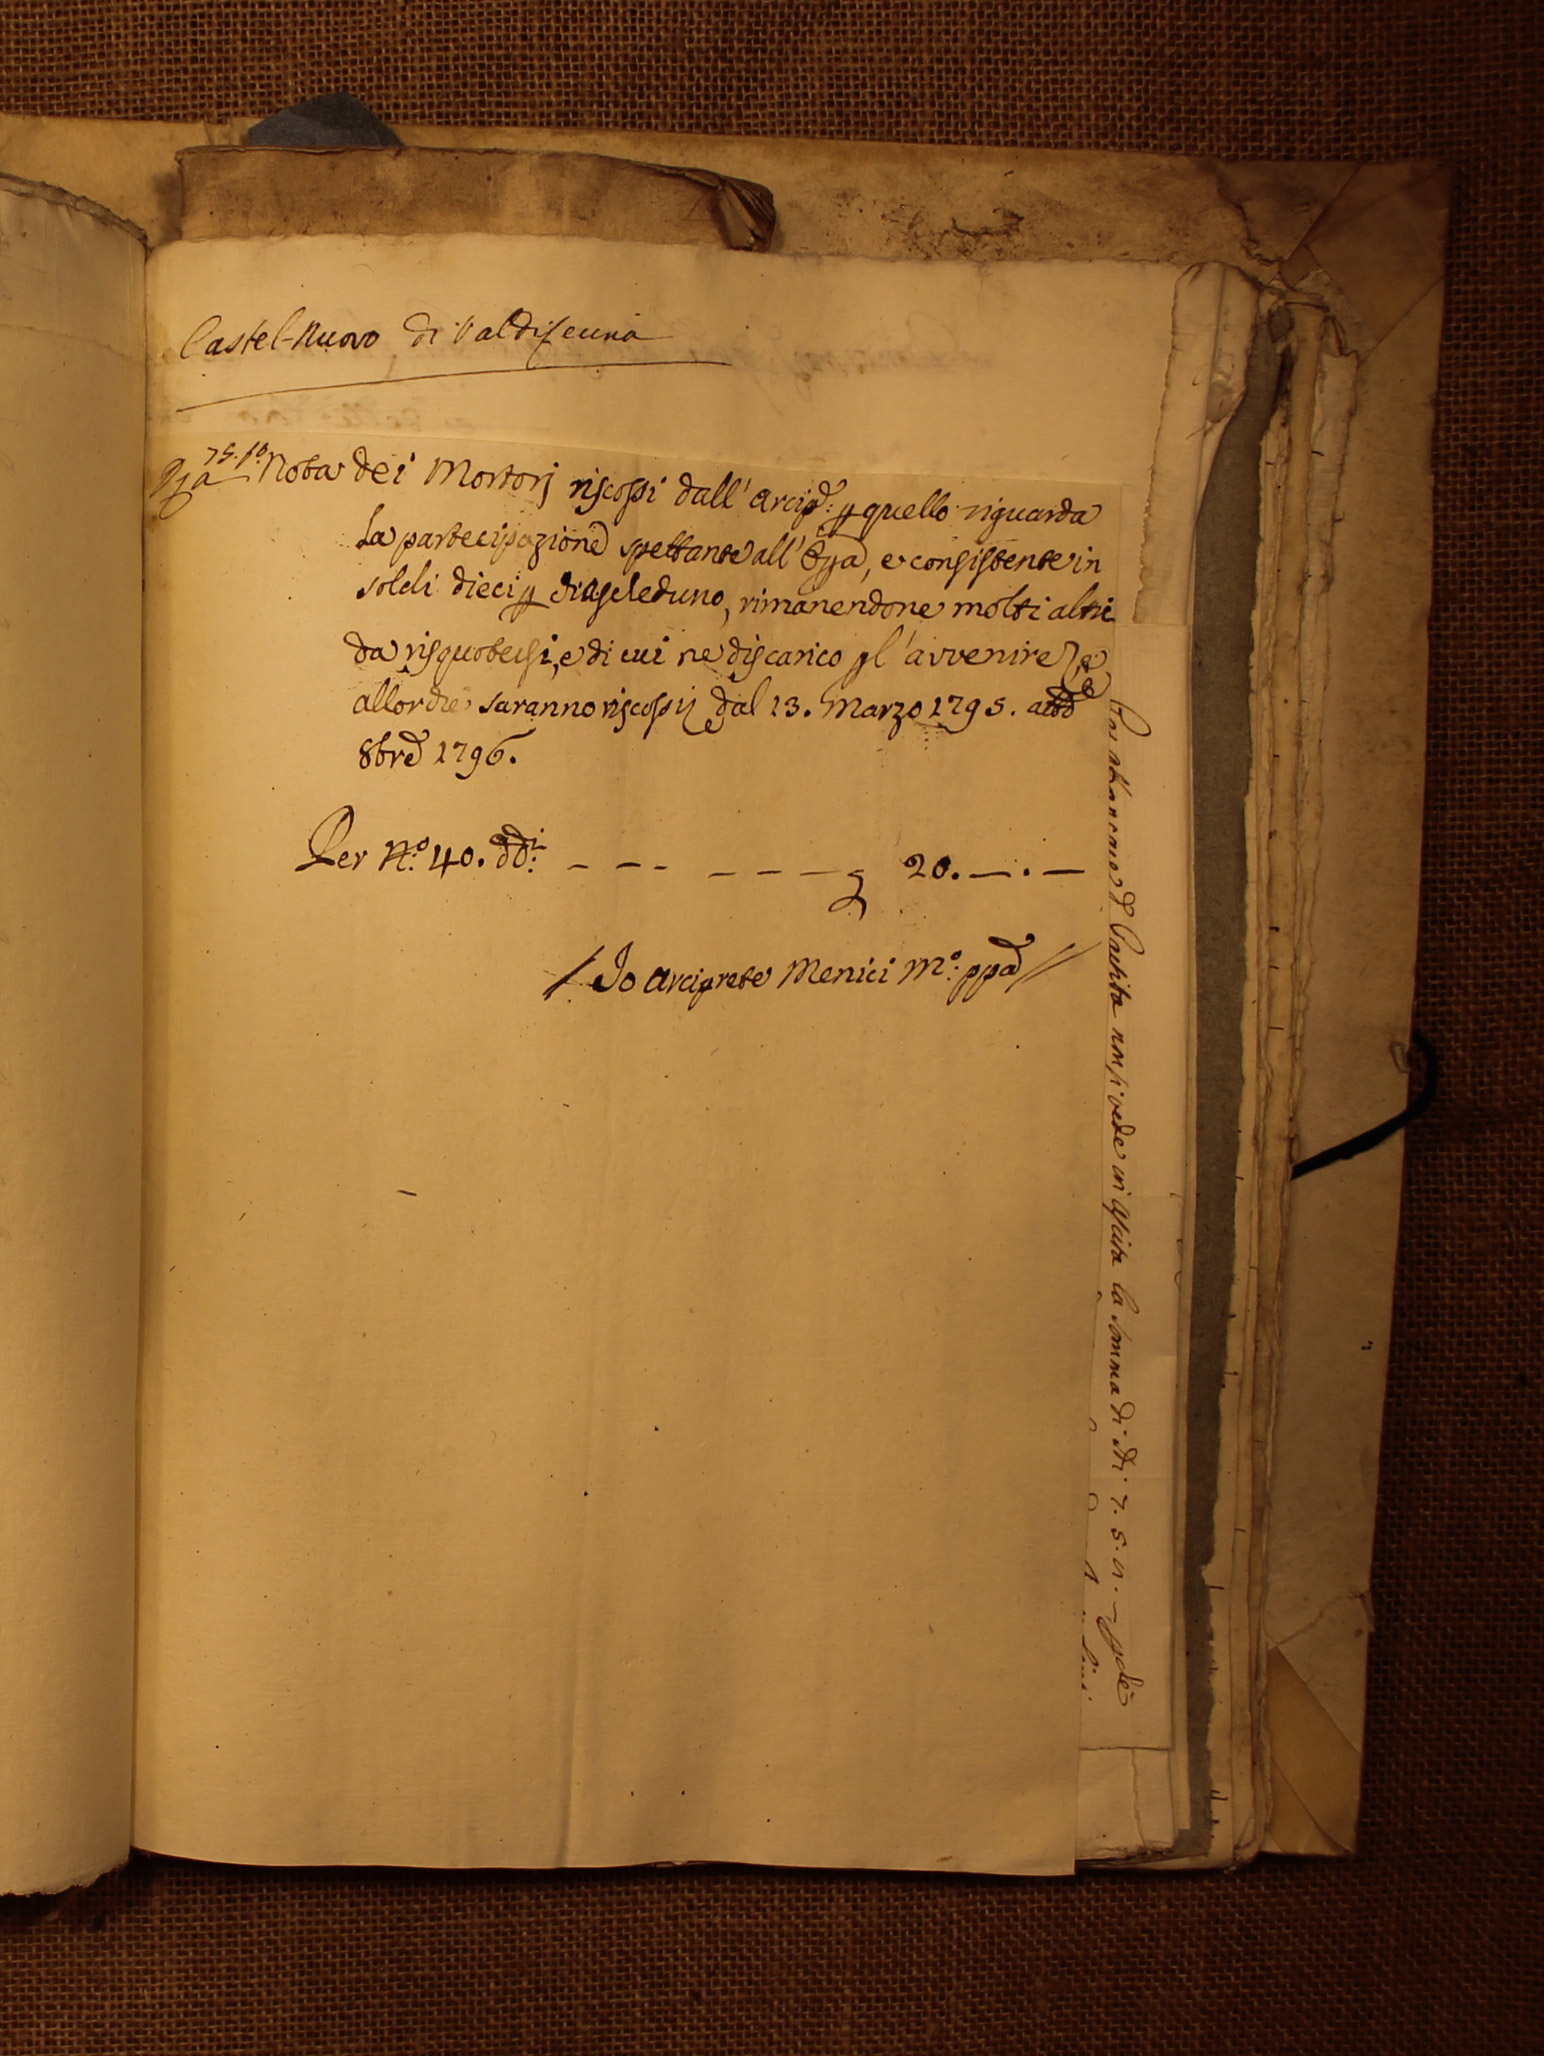 Castel-Nuovo di Valdicecina
75. po. Nota dei Mortorj riscossi dall' Arcipe. p quello riguarda
la partecipazione spettante all' Opa, e consistente in
soldi dieci p ciascheduno, rimanendone molti altri
da risquotersi, e di cui ne discarico pl' avvenire
allorchè saranno riscossi dal 13. Marzo 1795. a tto
8bre 1796.
Per No. 40. ddi. - - - - - - 20. —.—
Io Arciprete Menici Mo. ppa
Partita non si vede in uscita la somma di 7. 5.